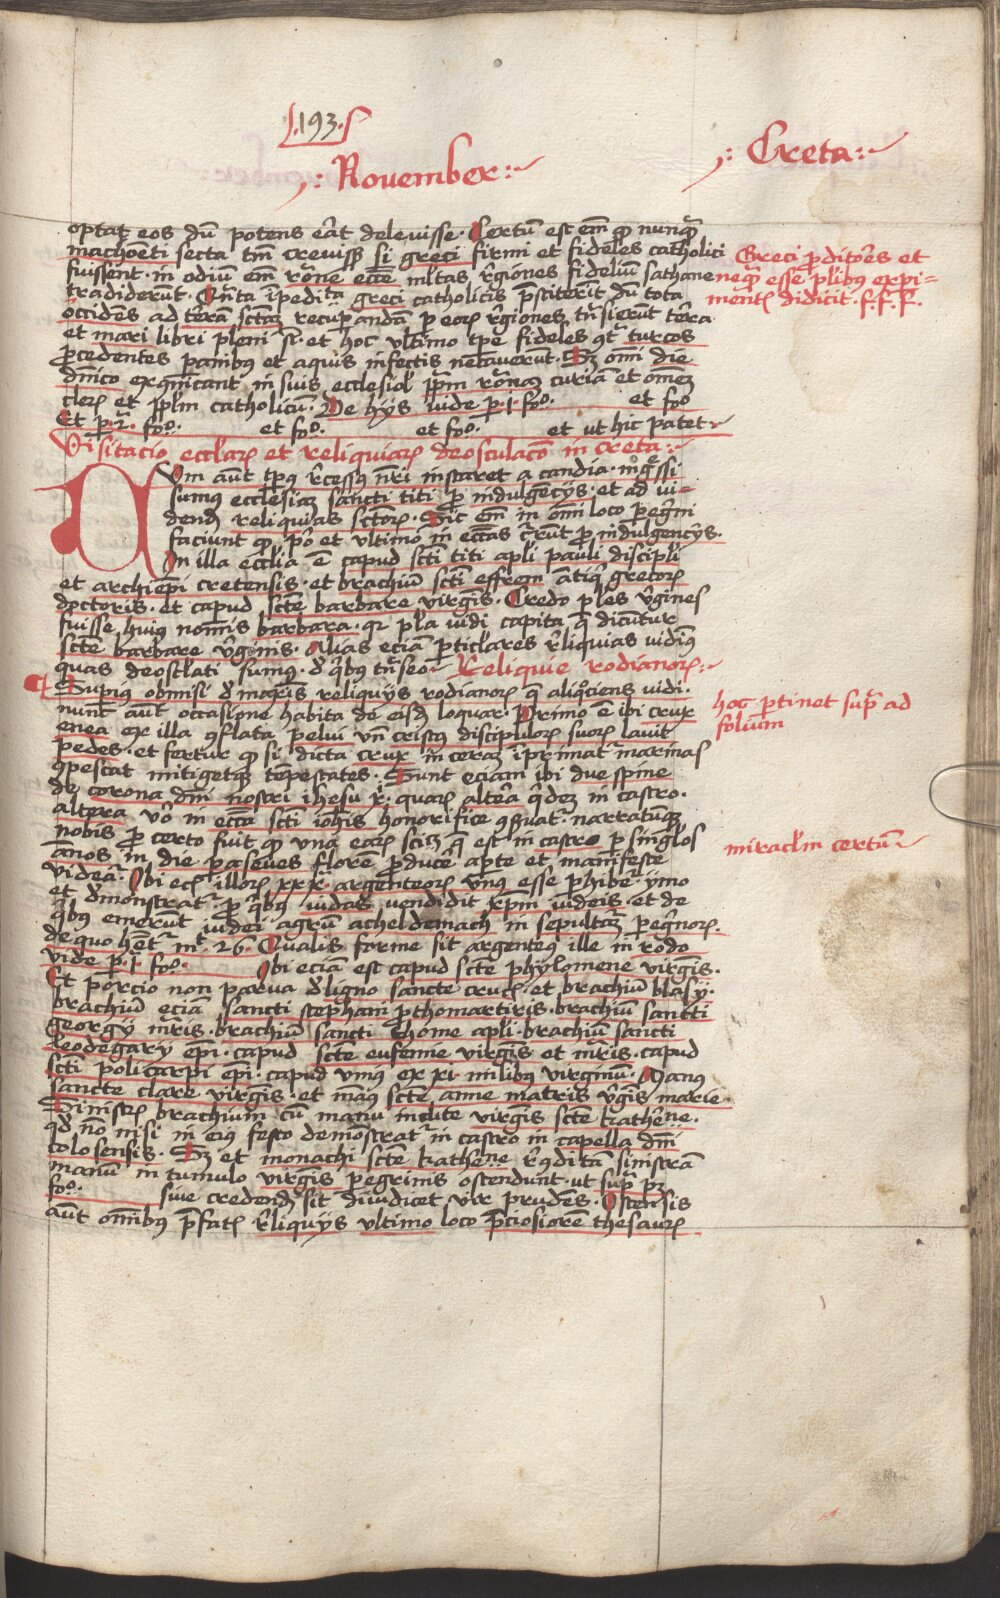 .193.
November
Creta
optat eos dũ potens erat delevisse. Certũ est em̃ qp nunqã
machoẽti secta tm̃ crevisse si greci firmi et fideles catholici
fuissent. in odiũ em̃ roñe ecc̃e ml̃tas r̃giones fideliũ sathane
tradiderunt. Qñta ĩpedita greci catholicis p̃stiterĩt dũ tota
occidẽs ad terrã sctãz recupandã p eoꝝ r̃giones trãsierut terra
et mari libri pleni st̃. et hoc ultimo tp̃e fideles ꝯt̃ turcos
ꝓcedentes panibus et aquis infectis necaverunt. Sz omni die
dñico excõicant in suis ecclesiis ppãm romanaz curiã et omẽz
cleꝝ et ppl̃m catholicũ. De hijs vide p. 1. fo. et fo
Et p. 2. fo. et fo. et fo. et ut hic patet
Visitacio eccl̃aꝝ et reliquiaꝝ deosculacõ in creta
Cum aut tp̃us r̃cessus nr̃i instaret a candia. ingressi
sumus ecclesiaz sancti titi ꝓ indulgencijs. et ad vi-
dendũ reliquias sctoꝝ. Sic em̃ in om̃i loco pegrini
faciunt qp pº et ultimo in ecclias currũt ꝓ indulgencijs.
In illa eccl̃ia ẽ capud scti titi apl̃i pauli discipl̃i
et archiepi cretensis. et brachiũ scti effrem ãtiq grecoꝝ
doctoris. et capud sctẽ barbare virgis. Credo pl̃es v̊gines
fuisse huius nomĩs barbara. qz pl̃a vidi capita q̃ dicuntur
sctẽ barbare v̊ginis. Alias eciã pticl̃ares r̃liquias vidimus
quas deosclati sumus. de qbus trãseo. Reliquie rodianoꝝ
Supius obmisi de magis reliquijs rodianoꝝ q̃ aliquociens vidi.
nunc aut occasione habita de eisdẽ loquar. Primo ẽ ibi crux
enea ex illa ꝯflata pelui in q̃ cristus discipuloꝝ suoꝝ lavit
pedes. et fertur qp si dicta crux in ceraz ĩprimat marinas
ꝯpescat mitigetqz tẽpestates. Sunt eciam ibi due spine
de corona dñi nostri ihesu x̃. quaꝝ altera qdez in castro.
altera v̊o in eccã scti ioh̃is honorifice ꝯsvat. narratumqz
nobis ꝓ certo fuit qp una eaꝝ scilz q̃ est in castro p singl̃os
ãnos in die pasceues flore ꝓduce apte et manifeste
videa. Ibi ec̃ illoꝝ xxx argenteoꝝ unus esse phibet ymo
et demonstrat ꝓ qbus iudas vendidit xpm iudeis. et de
qbus emerunt iudei agrũ acheldemach in sepulturã pegrinoꝝ.
de quo het mt. 26. Qualis forme sit argenteus ille in rodo
vide p. 1. fo. Ibi eciã est capud sctẽ phylomene virgis.
Et porcio non parva de ligno sancte crucis. et brachiũ blasij.
brachiũ eciã sancti stephani ꝓthomartiris. brachiũ sancti
georgij mr̃is. brachiũ sancti thome apl̃i. brachiũ sancti
leodegarij epi. capud sctẽ eufemie virgis et mr̃is. capud
scti policarpi epi. capud unius ex xi milibus virginũ. Manus
sancte clare virgis. et manus sctẽ anne matris v̊gis marie.
Sinistrũ brachium cũ manu inclite virgis sctẽ katherine.
qd nõ nisi in eius festo demonstrat in castro in capella dñi
colosensis. Sz et monachi sctẽ katherine r̃ꝯditã sinistrã
manũ in tumulo virgis pegrinis ostendunt. ut supra pz
fo. sive credendũ sit diiudicet vir prudẽs. Ostensis
aut omnibus p̃fatis r̃liquijs ultimo loco p̃ciosiorẽ thesauꝝ
Greci pditores et
nequã esse plibus expi-
mentis didicit. f. f. f.
hoc ptinet sup̃ ad
folium
miracl̃m certũ